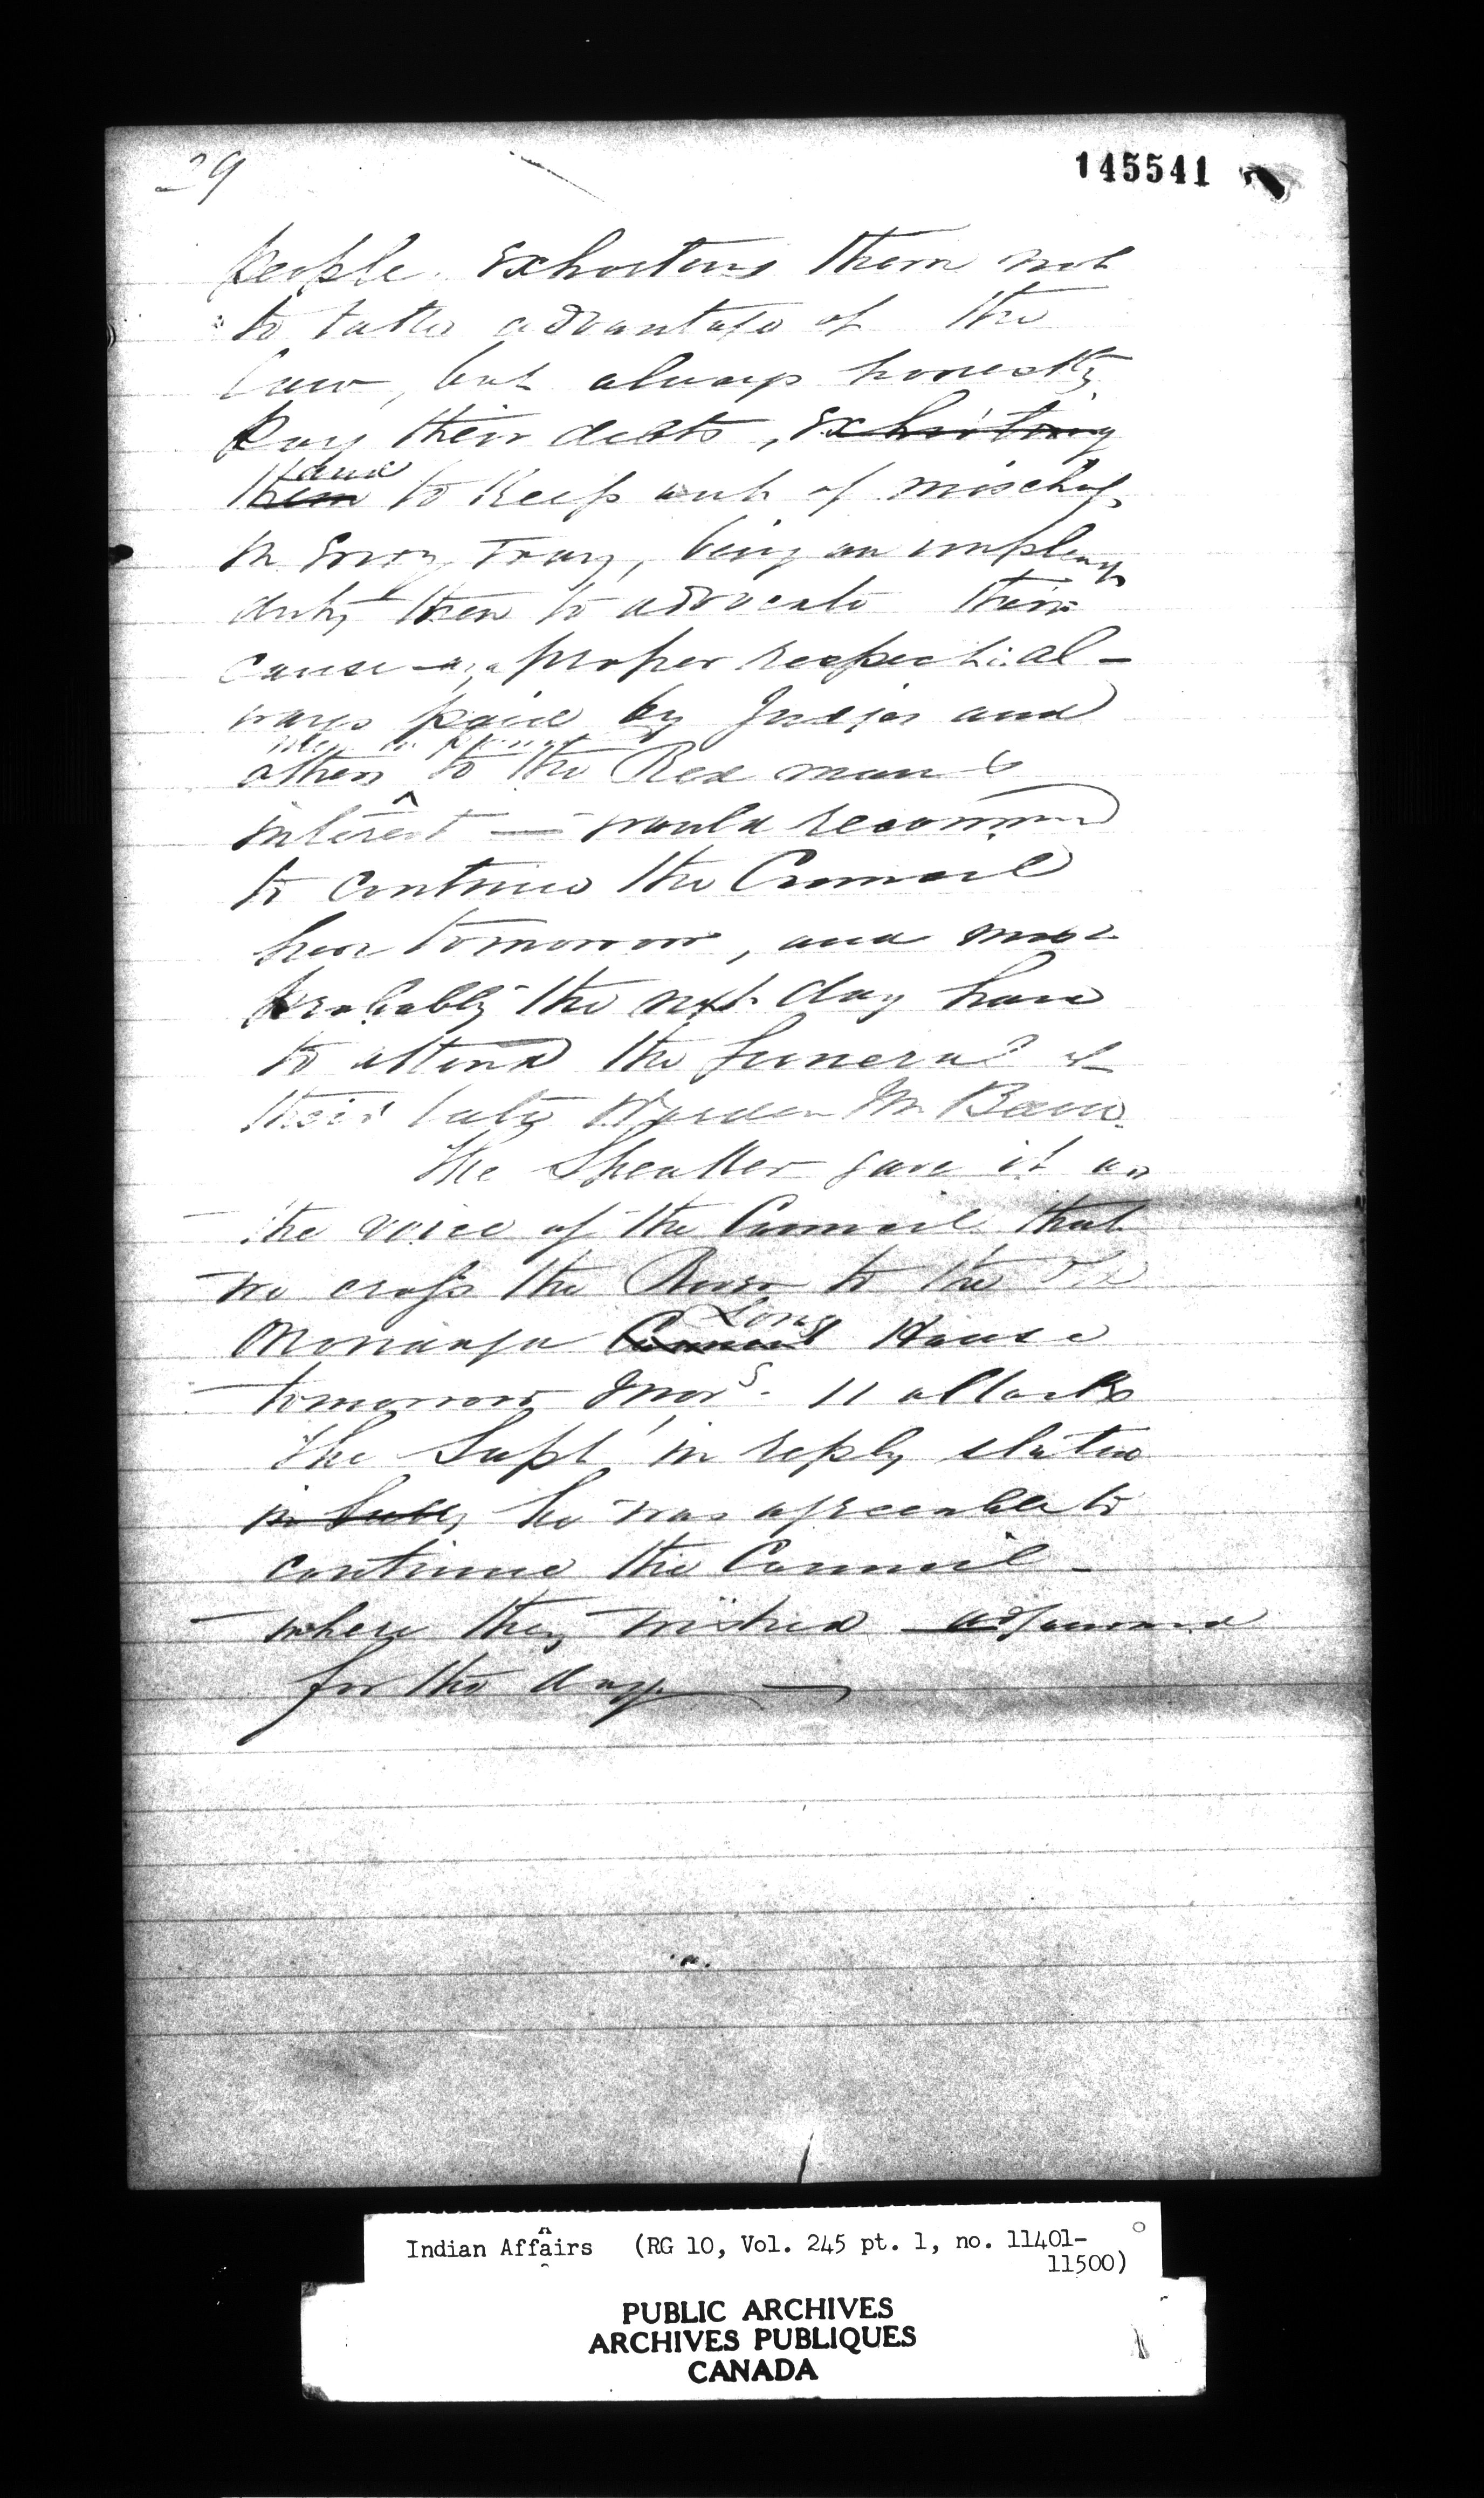 29
145541
people. exhorting them not
to take advantage of the
law, but always honestly
pay their debts, exhorting
them and to keep out of mischief
in every way, being an unpleasant
duty then to advocate their
cause proper respect is al-
ways paid by Judges and
others to the Red man's
interest — would recommend
to continue the Council
here tomorrow, and most
probably the next day have
to attend the funeral of
their late Warden Mr. Bain.
The Speaker gave it as
the voice of the Council that
we cross the River to the
Onondaga Council Long House
tomorrow Mor^g. 11 oClock
The Supt in reply stated
he was agreeable to
continue the Council -
where they wished adjourned
for the day —
Indian Affairs (RG 10, Vol. 245 pt. 1, no. 11401-
11500)
PUBLIC ARCHIVES
ARCHIVES PUBLIQUES
CANADA